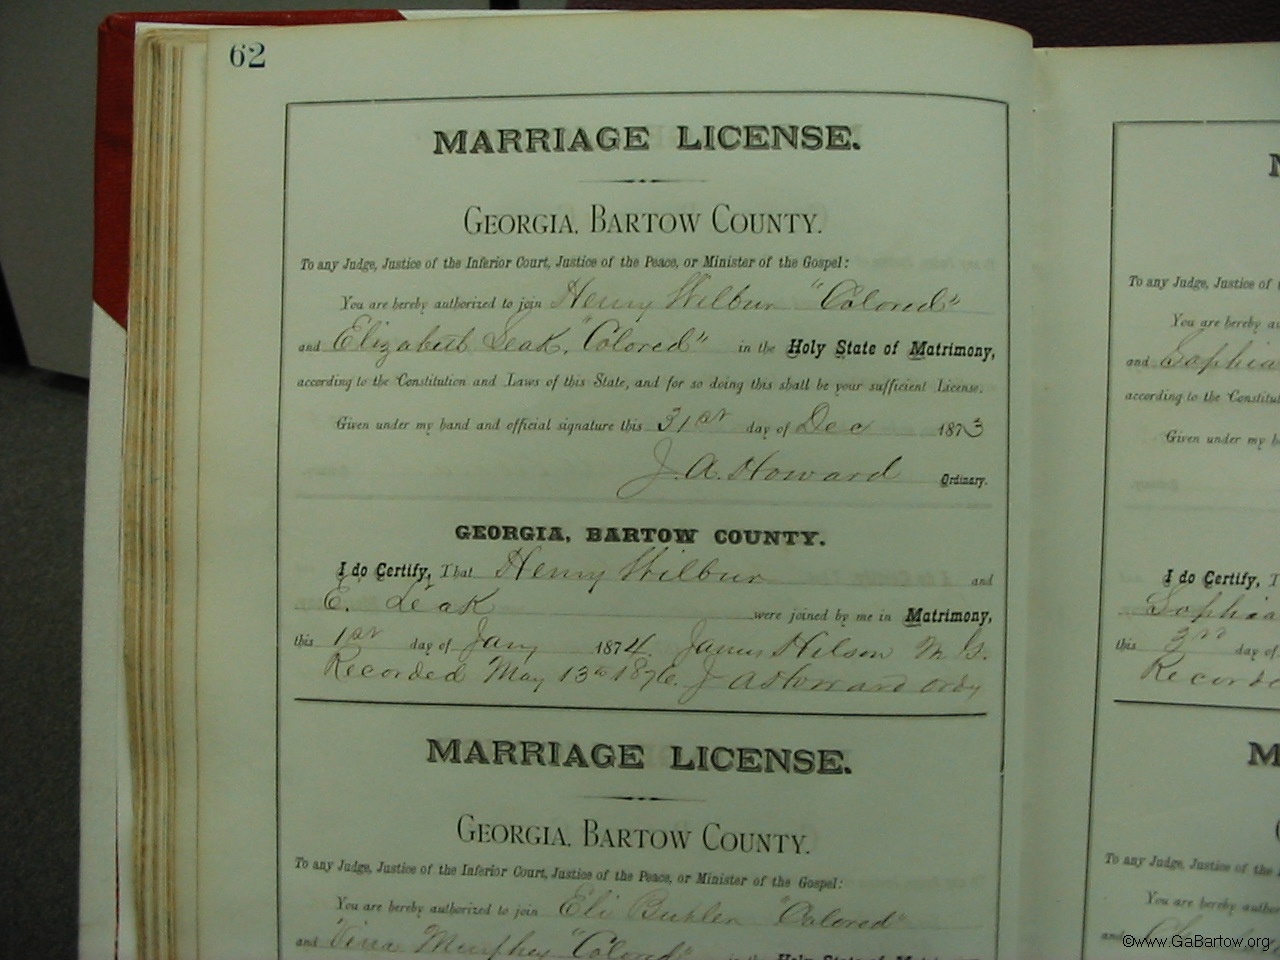 62
MARRIAGE LICENSE.
GEORGIA, BARTOW COUNTY.
To any Judge, Justice of the Inferior Court, Justice of the Peace, or Minister of the Gospel:
You are hereby authorized to join Henry Wilbur "Colored"
and Elizabeth Leak, "Colored" in the Holy State of Matrimony,
according to the Constitution and Laws of this State, and for so doing this shall be your sufficient License.
Given under my hand and official signature this 31st day of Dec 1873
J. A. Howard Ordinary.
GEORGIA, BARTOW COUNTY.
I do Certify, That Henry Wilbur and
E. Leak were joined by me in Matrimony,
this 1st day of Jany 1874. James Wilson M. G.
Recorded May 13th 1876. J A Howard Ordy
MARRIAGE LICENSE.
GEORGIA, BARTOW COUNTY.
To any Judge, Justice of the Inferior Court, Justice of the Peace, or Minister of the Gospel:
You are hereby authorized to join Eli "Colored"
and Murphey "Colored" in the Holy State of Matrimony,
To any Judge, Justice of
You are hereby
and Sophia
according to the
Given under my
I do Certify, T
Sophia
this 3rd day of
To any Judge, Justice of the
You are hereby
and
©www.GaBartow.org